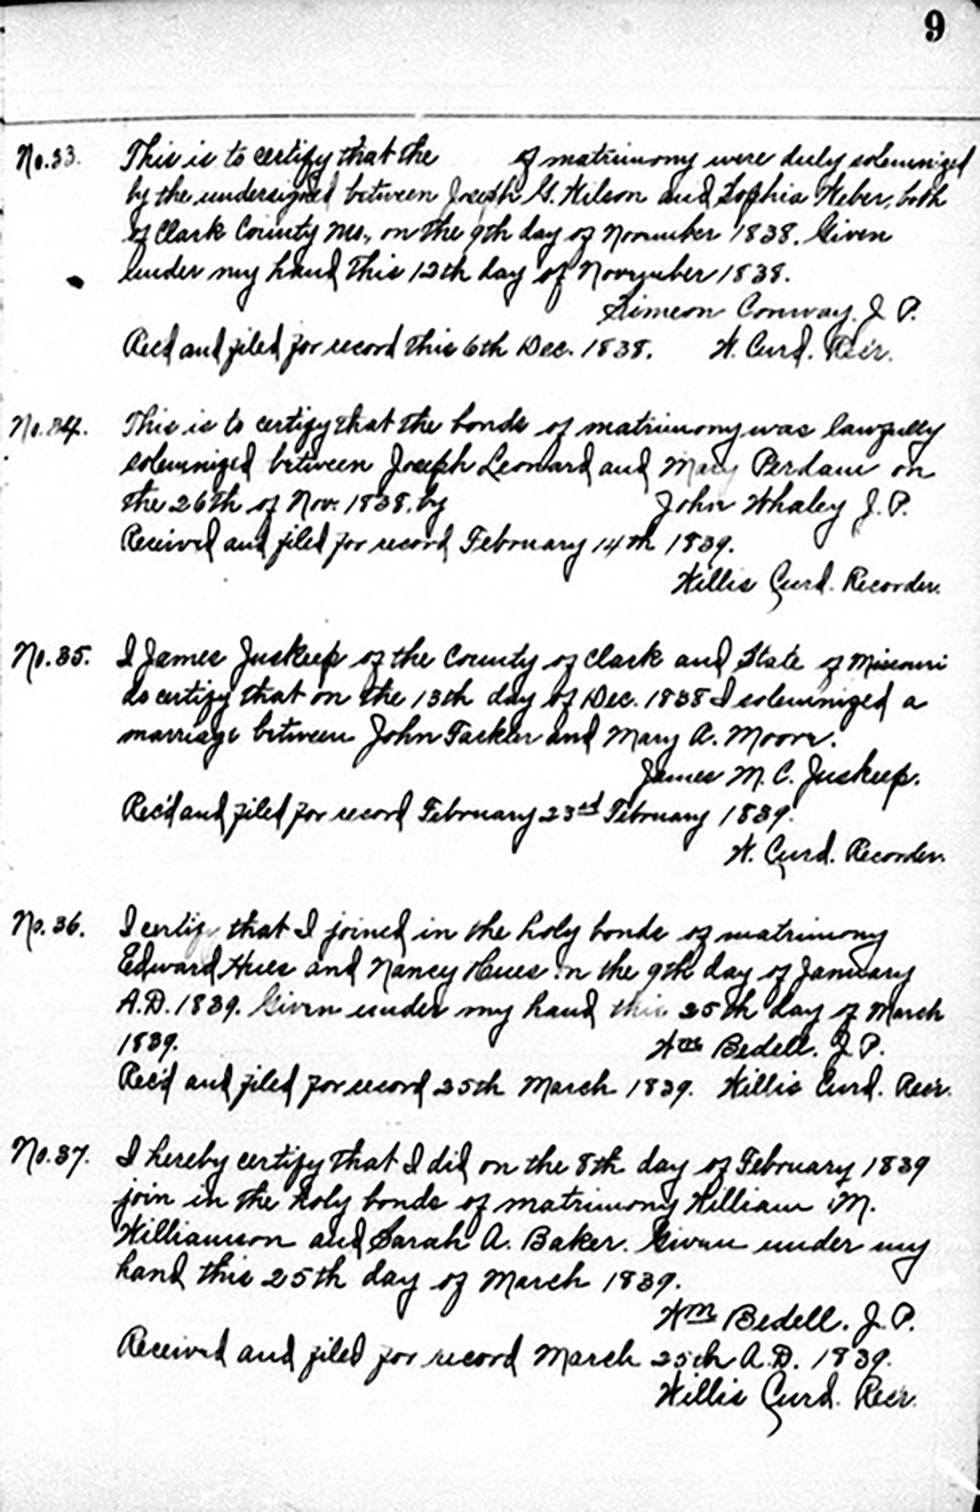 9
No. 33. This is to certify that the of matrimony were duly solemnized
by the undersigned between Joseph G. Wilson and Sophia Weber, both
of Clark County Mo., on the 9th day of November 1838. Given
under my hand this 12th day of November 1838.
Simeon Conway. J. P.
Rec'd and filed for record this 6th Dec. 1838. W. Curd. Rec'r.
No. 34. This is to certify that the bonds of matrimony was lawfully
solemnized between Joseph Leonard and Mary Perdam on
the 26th of Nov. 1838, by John Whaley J. P.
Received and filed for record February 14th 1839.
Willis Curd. Recorder.
No. 35. I James Juskeep of the County of Clark and State of Missouri
do certify that on the 13th day of Dec. 1838 I solemnized a
marriage between John Tackler and Mary A. Moore.
James M. C. Juskeep.
Rec'd and filed for record February 23rd February 1839.
W. Curd. Recorder.
No. 36. I certify that I joined in the holy bonds of matrimony
Edward Hues and Nancy Hues on the 9th day of January
A.D. 1839. Given under my hand this 25th day of March
1839. Wm Bedell. J. P.
Rec'd and filed for record 25th March 1839. Willis Curd. Rec'r.
No. 37. I hereby certify that I did on the 8th day of February 1839
join in the holy bonds of matrimony William M.
Williamson and Sarah A. Baker. Given under my
hand this 25th day of March 1839.
Wm Bedell. J. P.
Received and filed for record March 25th A.D. 1839.
Willis Curd. Rec'r.